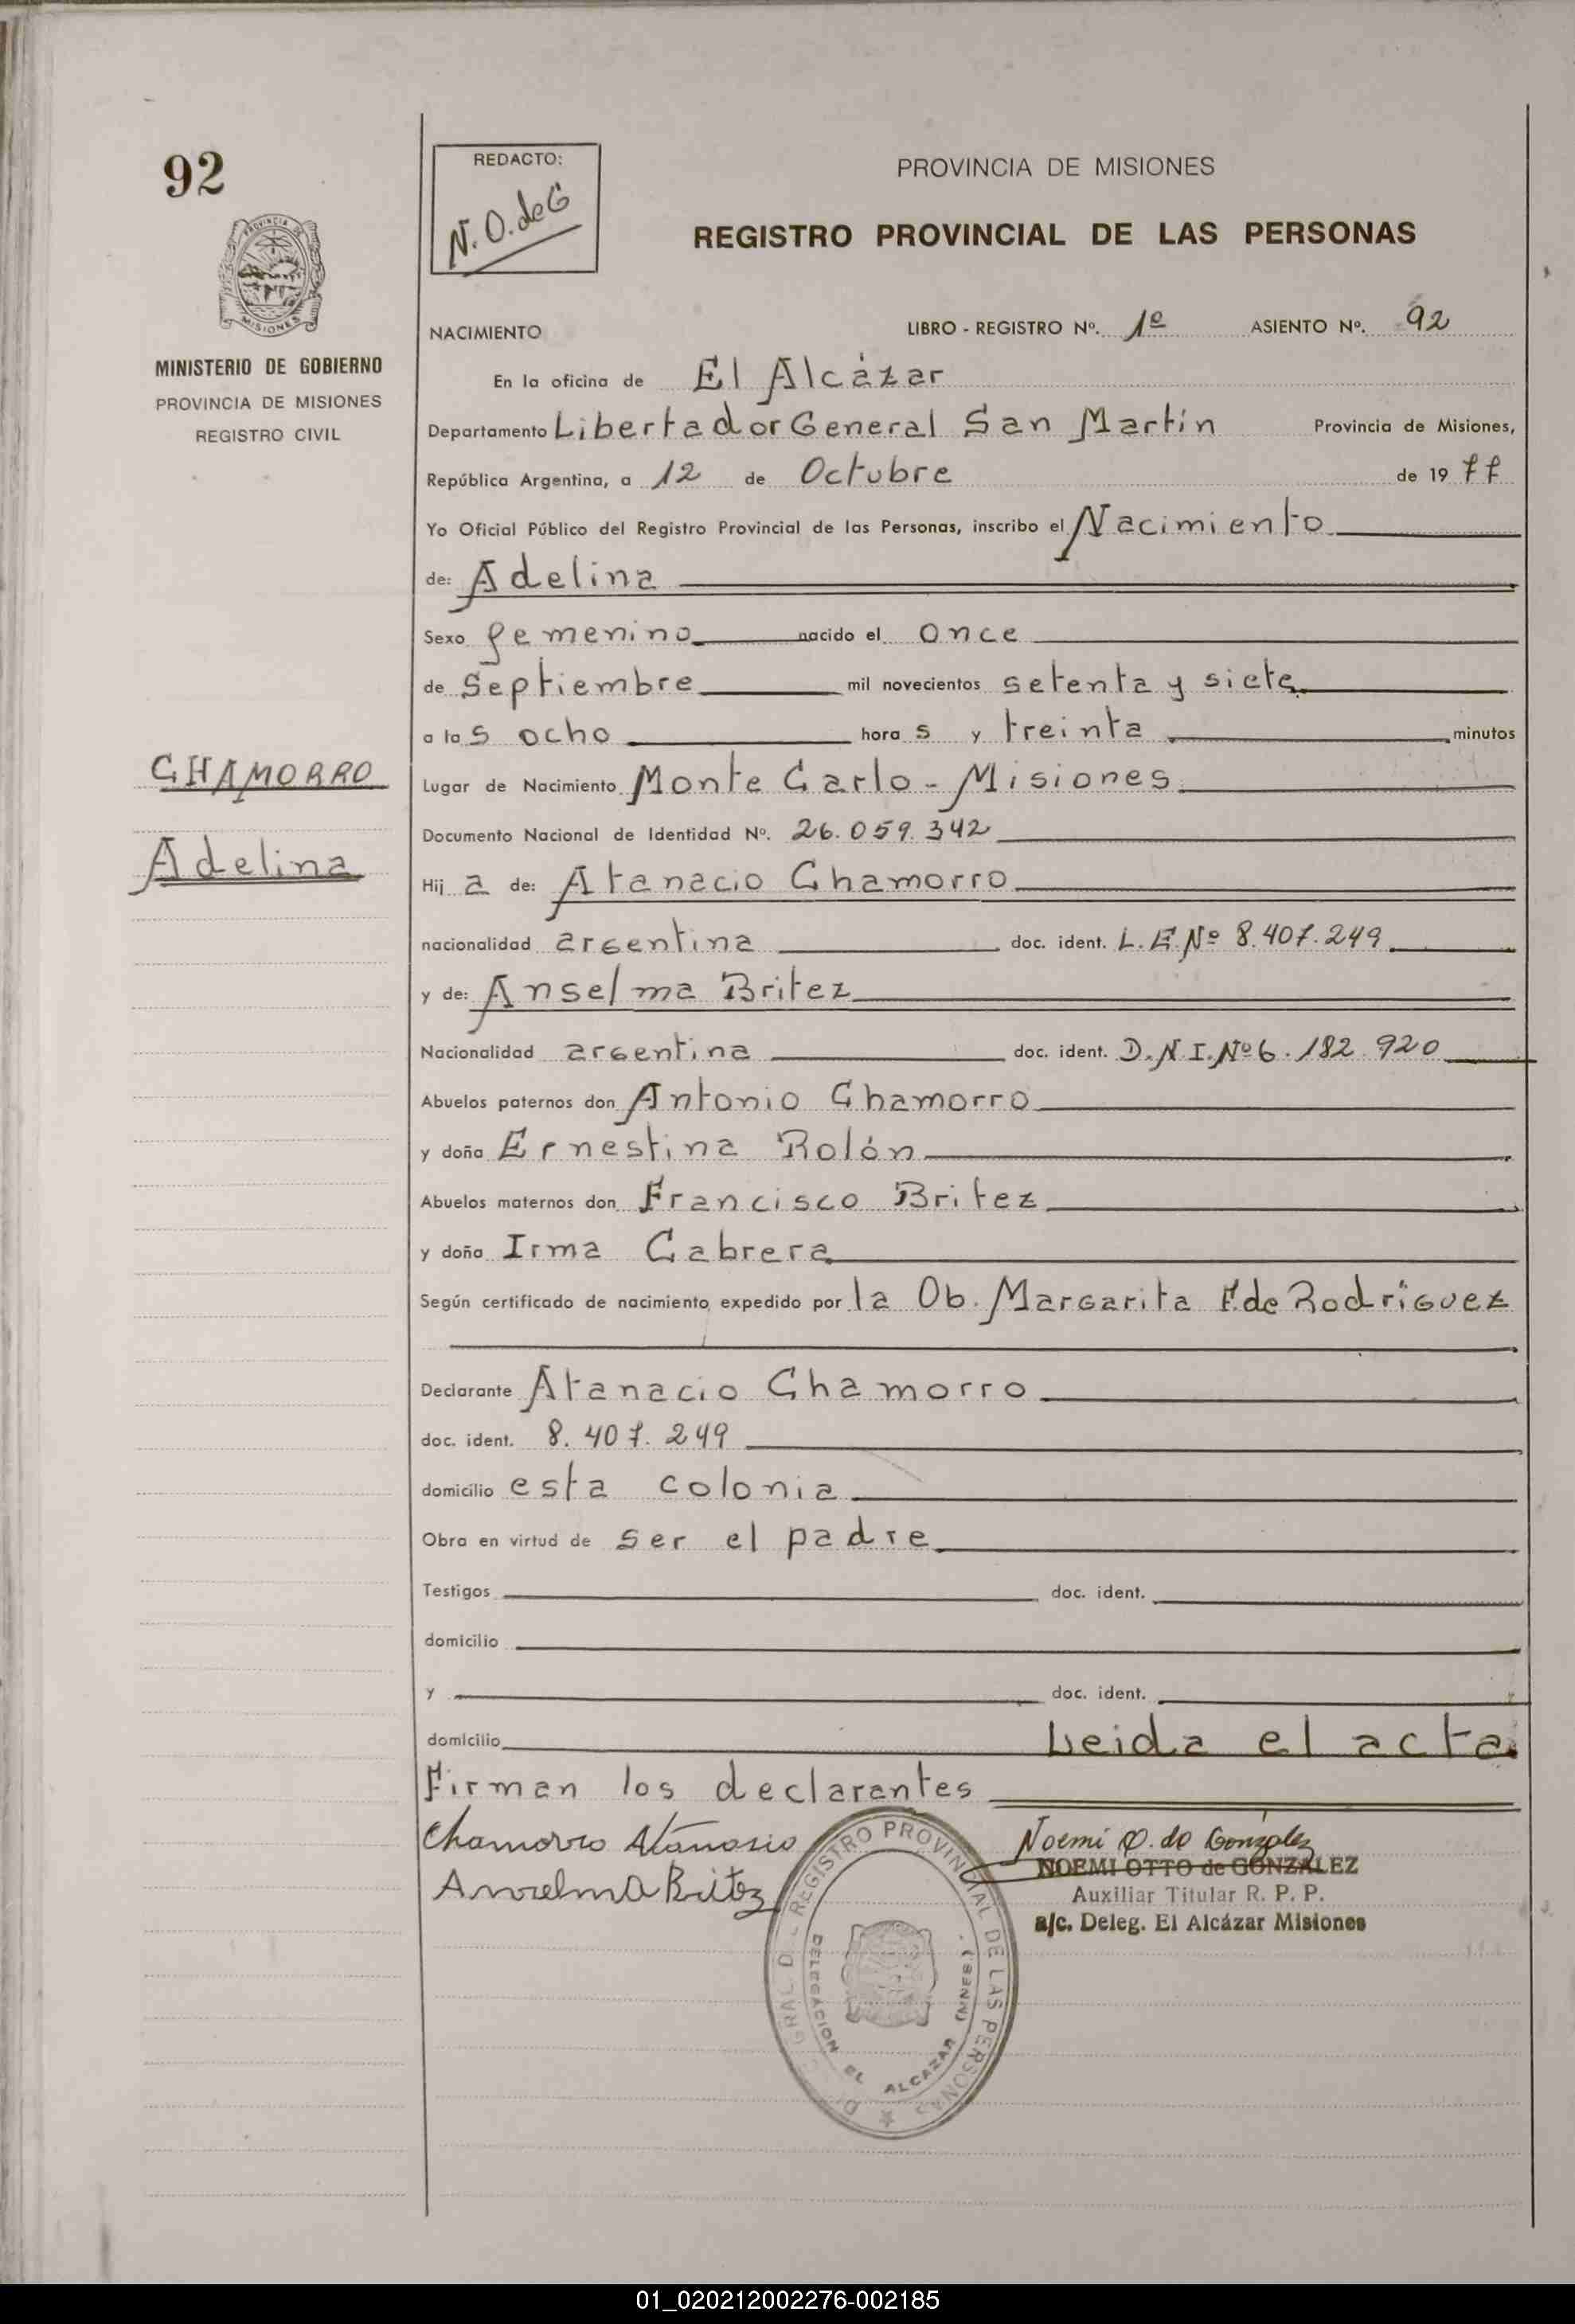 92
REDACTO:
N. O. de G
PROVINCIA DE MISIONES
REGISTRO PROVINCIAL DE LAS PERSONAS
PROVINCIA DE
MISIONES
MINISTERIO DE GOBIERNO
PROVINCIA DE MISIONES
REGISTRO CIVIL
NACIMIENTO LIBRO - REGISTRO Nº. 1º ASIENTO Nº. 92
En la oficina de El Alcázar
Departamento Libertador General San Martín Provincia de Misiones,
República Argentina, a 12 de Octubre de 1977
Yo Oficial Público del Registro Provincial de las Personas, inscribo el Nacimiento
de: Adelina
Sexo femenino nacido el once
de Septiembre mil novecientos setenta y siete
a las ocho horas y treinta minutos
CHAMORRO
Adelina
Lugar de Nacimiento Monte Carlo - Misiones
Documento Nacional de Identidad Nº. 26.059.342
Hija de: Atanacio Chamorro
nacionalidad argentina doc. ident. L.E. Nº 8.407.249
y de: Anselma Britez
Nacionalidad argentina doc. ident. D.N.I. Nº 6.182.920
Abuelos paternos don Antonio Chamorro
y doña Ernestina Rolón
Abuelos maternos don Francisco Britez
y doña Irma Cabrera
Según certificado de nacimiento expedido por la Ob. Margarita F. de Rodríguez
Declarante Atanacio Chamorro
doc. ident. 8.407.249
domicilio esta colonia
Obra en virtud de ser el padre
Testigos doc. ident.
domicilio
y doc. ident.
domicilio Leida el acta
Firman los declarantes
Chamorro Atanasio
Anselma Britez
Noemi O. de González
NOEMI OTTO de GONZALEZ
Auxiliar Titular R. P. P.
a/c. Deleg. El Alcázar Misiones
REGISTRO PROVINCIAL DE LAS PERSONAS
DELEGACION EL ALCAZAR (MNES.)
01_020212002276-002185